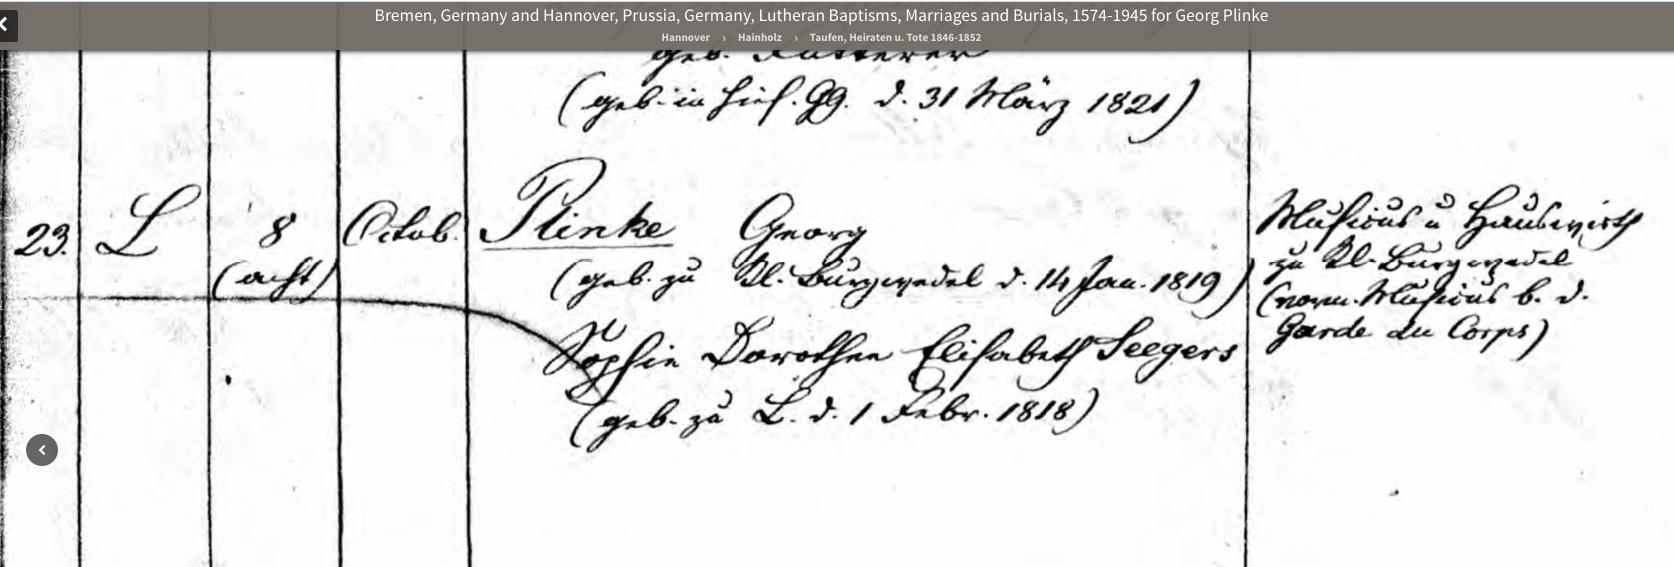 Bremen, Germany and Hannover, Prussia, Germany, Lutheran Baptisms, Marriages and Burials, 1574-1945 for Georg Plinke
Hannover › Hainholz › Taufen, Heiraten u. Tote 1846-1852
geb.
(geb. in hies. Gg. d. 31 März 1821)
23. L 8 Octob. Plinke Georg
(acht)
(geb. zu Kl. Burgwedel d. 14 Jan. 1819)
Sophie Dorothee Elisabeth Seegers
(geb. zu L. d. 1 Febr. 1818)
Musicus u Hauswirth
zu Kl. Burgwedel
(vorm. Musicus b. d.
Garde du Corps)